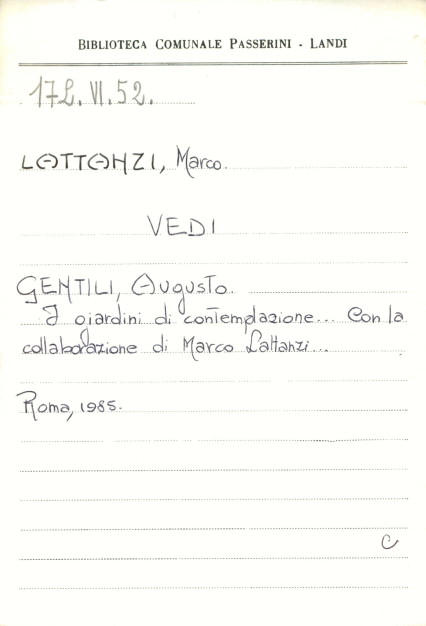 BIBLIOTECA COMUNALE PASSERINI - LANDI
172.VI.52.
LATTANZI, Marco.
VEDI
GENTILI, Augusto.
I giardini di contemplazione... Con la
collaborazione di Marco Lattanzi...
Roma, 1985.
C